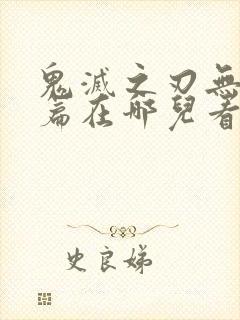 鬼滅之刃無
篇在哪兒看
史良娣